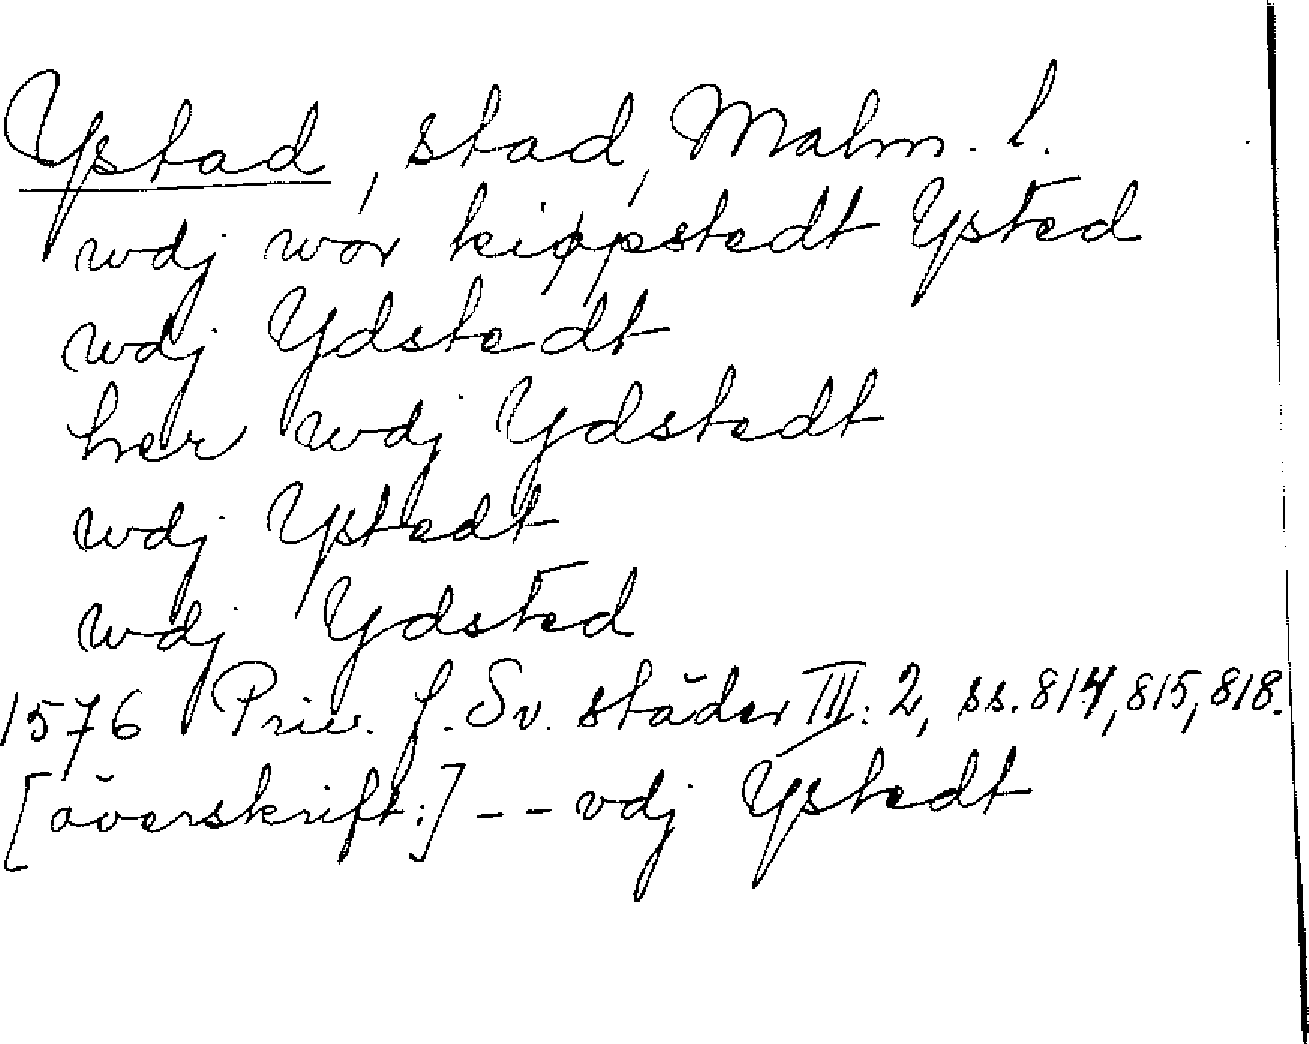 Ystad, stad, Malm. l.
wdj wor kiøpstedt Ysted
wdj Ydstedt
her wdj Ydstedt
wdj Ystedt
wdj Ydsted
1576 Priv. f. Sv. städer III: 2, ss. 814, 815, 818.
[överskrift:] - - vdj Ystedt